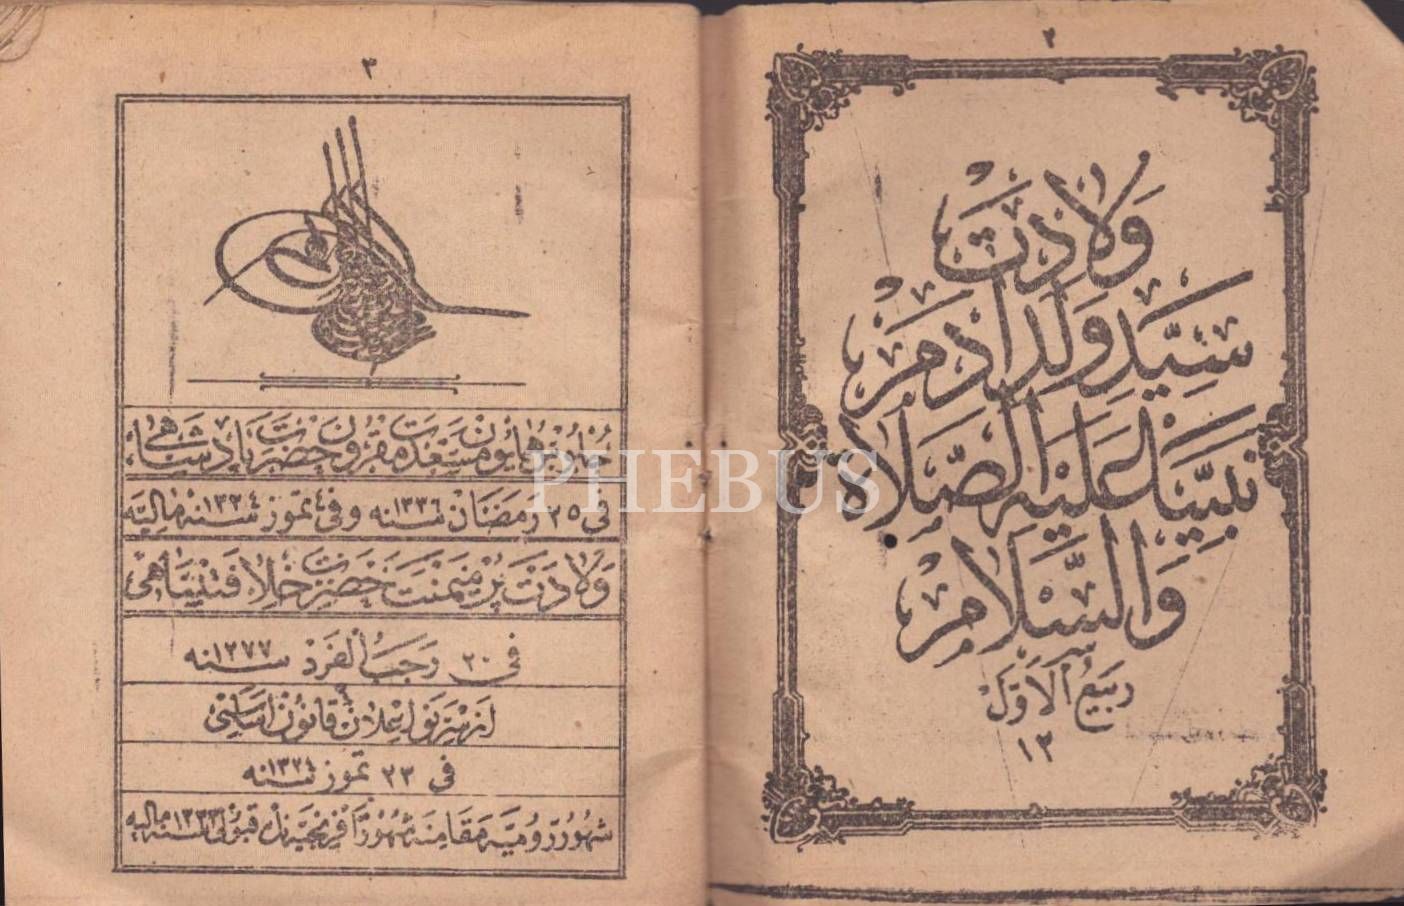 ٢
ولادت
سيد ولد ادم
نبينا عليه الصلاة
والسلام
ربيع الاول
١٢
٣
جلوس همايون مسعدت مقرون حضرت پادشاهی
فی ٢٥ رمضان سنه ١٣٣٦ و فی ٤ تموز سنه ١٣٣٤ ماليه
ولادت پر ميمنت حضرت خلافتپناهی
فی ٢٠ رجب الفرد سنه ١٢٧٧
از سر نو اعلان قانون اساسی
فی ٢٣ تموز سنه ١٣٢٤
شهور روميه مقامنه شهور افرنجينك قبولی سنه ١٣٣٣ ماليه
PHEBUS